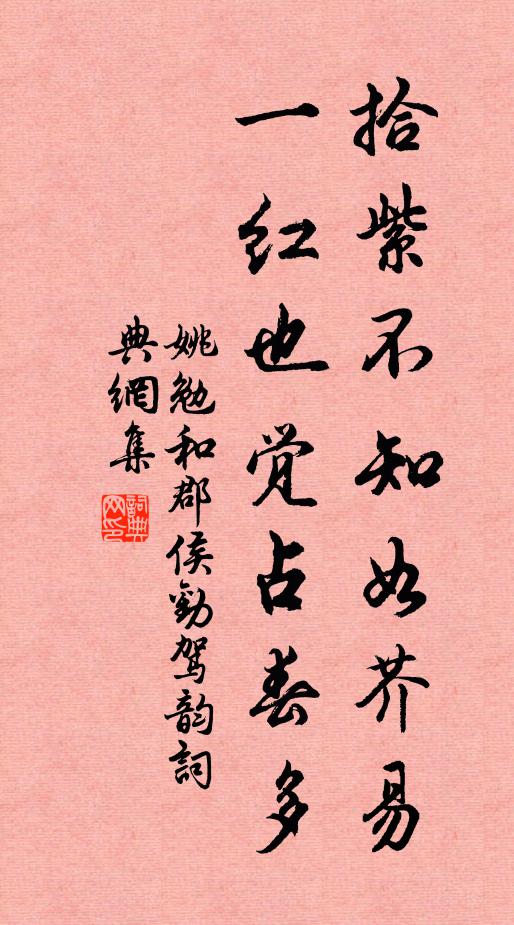 拾紫不知如芥易
一红也觉占春多
姚勉和郡侯劝驾韵詞
典網集
詞典
网印